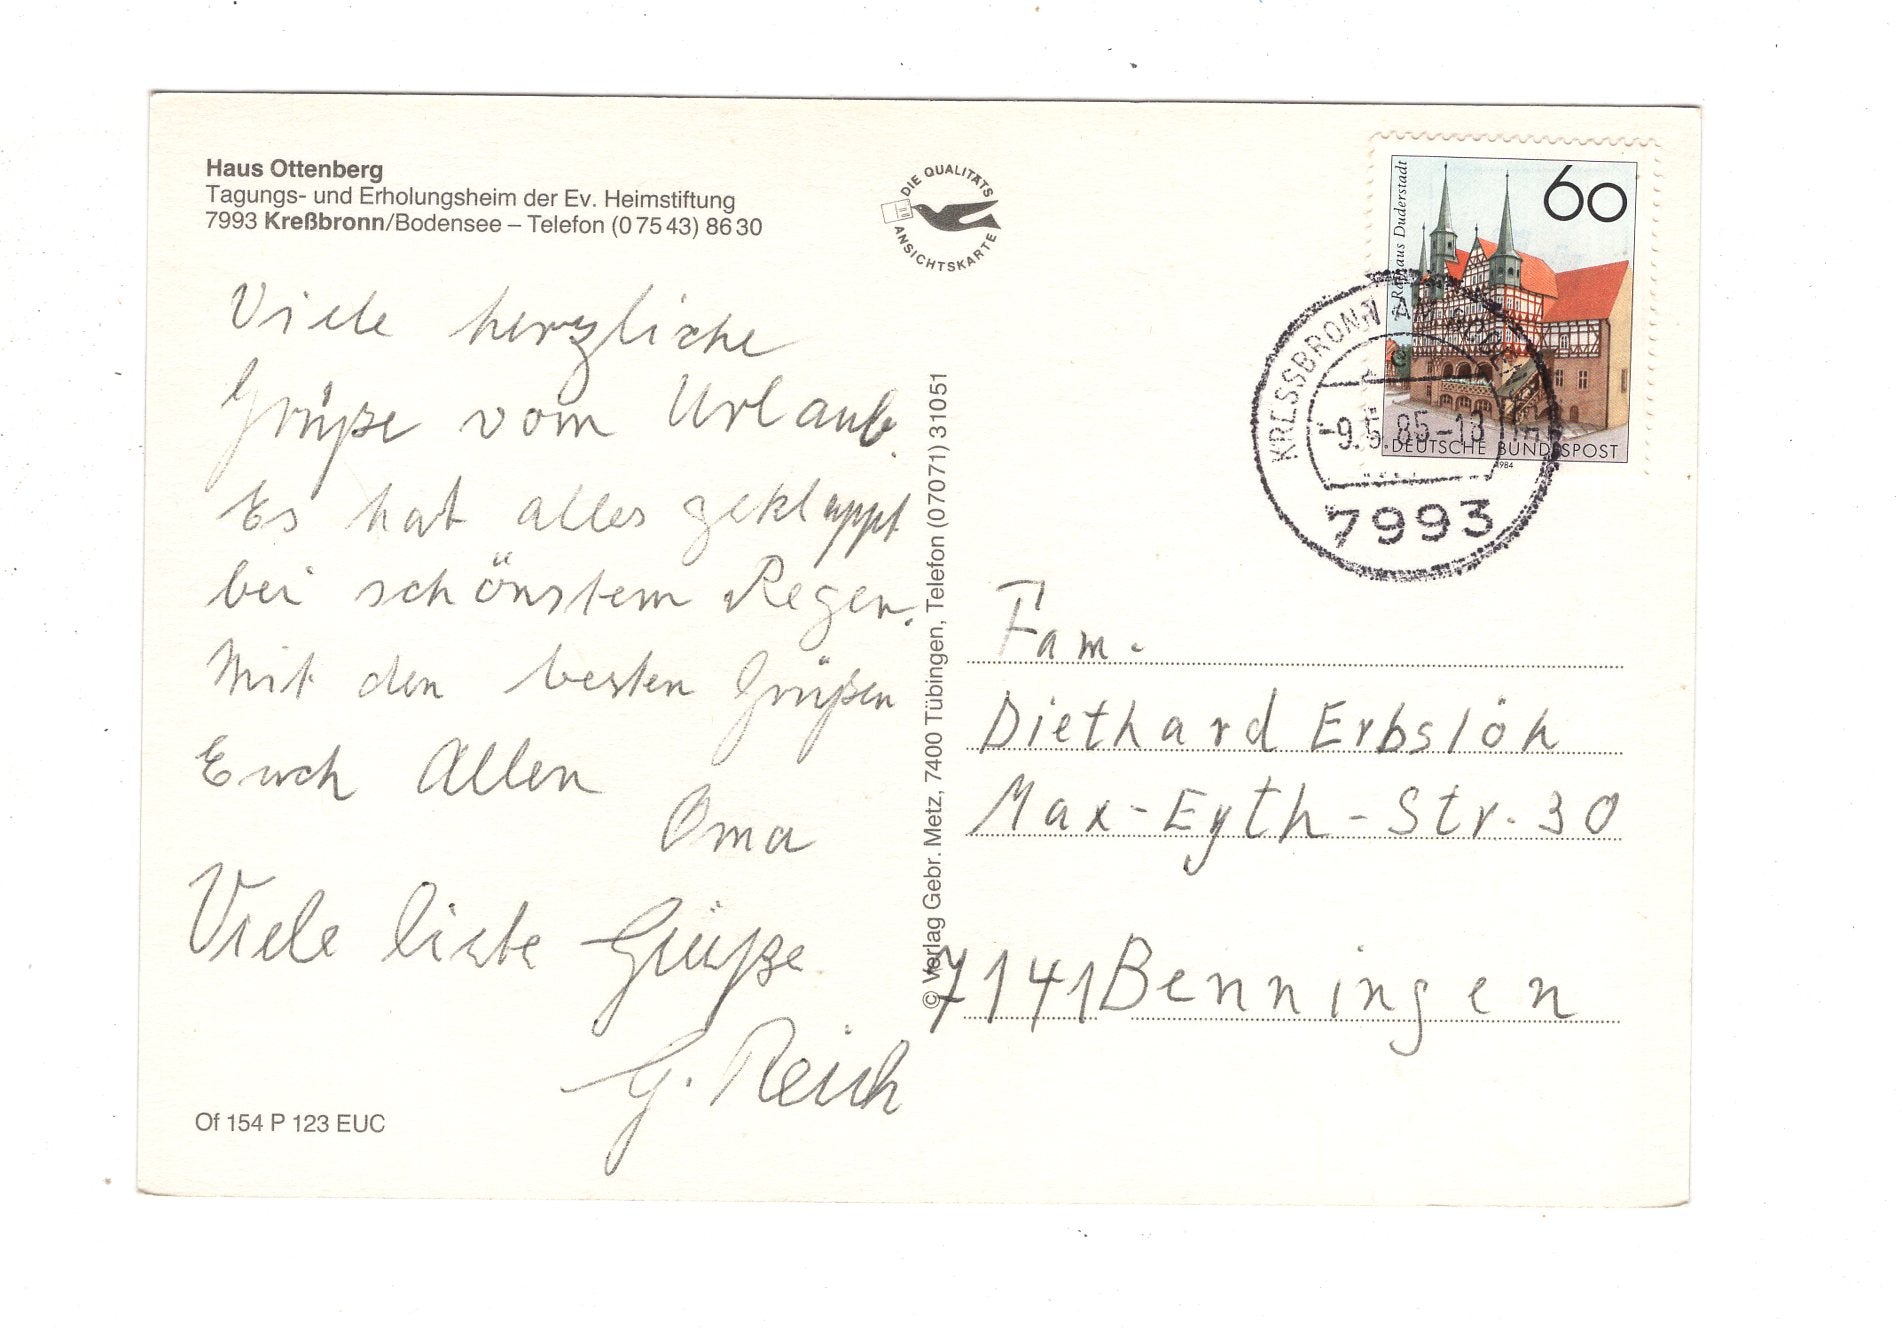 Haus Ottenberg
Tagungs- und Erholungsheim der Ev. Heimstiftung
7993 Kreßbronn/Bodensee – Telefon (0 75 43) 86 30
DIE QUALITÄTS
ANSICHTSKARTE
Viele herzliche
Grüße vom Urlaub.
Es hat alles geklappt
bei schönstem Regen.
Mit den besten Grüßen
Euch Allen
Oma
Viele liebe Grüße
G. Reich
Of 154 P 123 EUC
© Verlag Gebr. Metz, 7400 Tübingen, Telefon (07071) 31051
60
Rathaus Duderstadt
DEUTSCHE BUNDESPOST
1984
KRESSBRONN AM BODENSEE
-9.5.85-18
7993
Fam.
Diethard Erbslöh
Max-Eyth-Str. 30
7141 Benningen